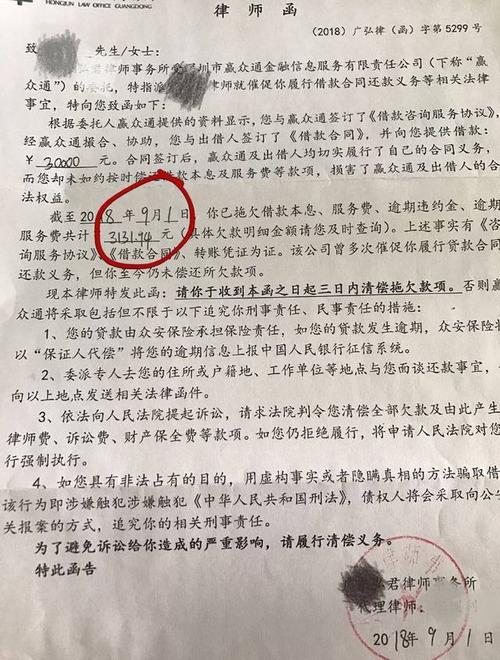 HONGJUN LAW OFFICE GUANGDONG
律师函
（2018）广弘律（函）字第5299号
致 先生/女士：
弘君律师事务所受深圳市赢众通金融信息服务有限责任公司（下称“赢
众通”）的委托，特指派 律师就催促你履行借款合同还款义务等相关法律
事宜，特向您致函如下：
根据委托人赢众通提供的资料显示，您与赢众通签订了《借款咨询服务协议》，
经赢众通撮合、协助，您与出借人签订了《借款合同》，并向您提供借款：
￥30000元。合同签订后，赢众通及出借人均切实履行了自己的合同义务，
而您却未如约按时偿还借款本息及服务费等款项，损害了赢众通及出借人的合
法权益。
截至2018年9月1日，你已拖欠借款本息、服务费、逾期违约金、逾期
服务费共计3131.94元（具体欠款明细金额请您及时查询）。上述事实有《咨
询服务协议》《借款合同》、转账凭证为证。该公司曾多次催促你履行贷款合同
还款义务，但你至今仍未偿还所欠款项。
现本律师特发此函：请你于收到本函之日起三日内清偿拖欠款项。否则赢
众通将采取包括但不限于以下追究你刑事责任、民事责任的措施：
1、您的贷款由众安保险承担保险责任，如您的贷款发生逾期，众安保险将
以“保证人代偿”将您的逾期信息上报中国人民银行征信系统。
2、委派专人去您的住所或户籍地、工作单位等地点与您面谈还款事宜，
向以上地点发送相关法律函件。
3、依法向人民法院提起诉讼，请求法院判令您清偿全部欠款及由此产生
律师费、诉讼费、财产保全费等款项。如您仍拒绝履行，将申请人民法院对您
行强制执行。
4、如您具有非法占有的目的，用虚构事实或者隐瞒真相的方法骗取借
该行为即涉嫌触犯涉嫌触犯《中华人民共和国刑法》，债权人将会采取向公
关报案的方式，追究你的相关刑事责任。
为了避免诉讼给你造成的严重影响，请履行清偿义务。
特此函告
君律师事务所
代理律师：
2018年9月1日